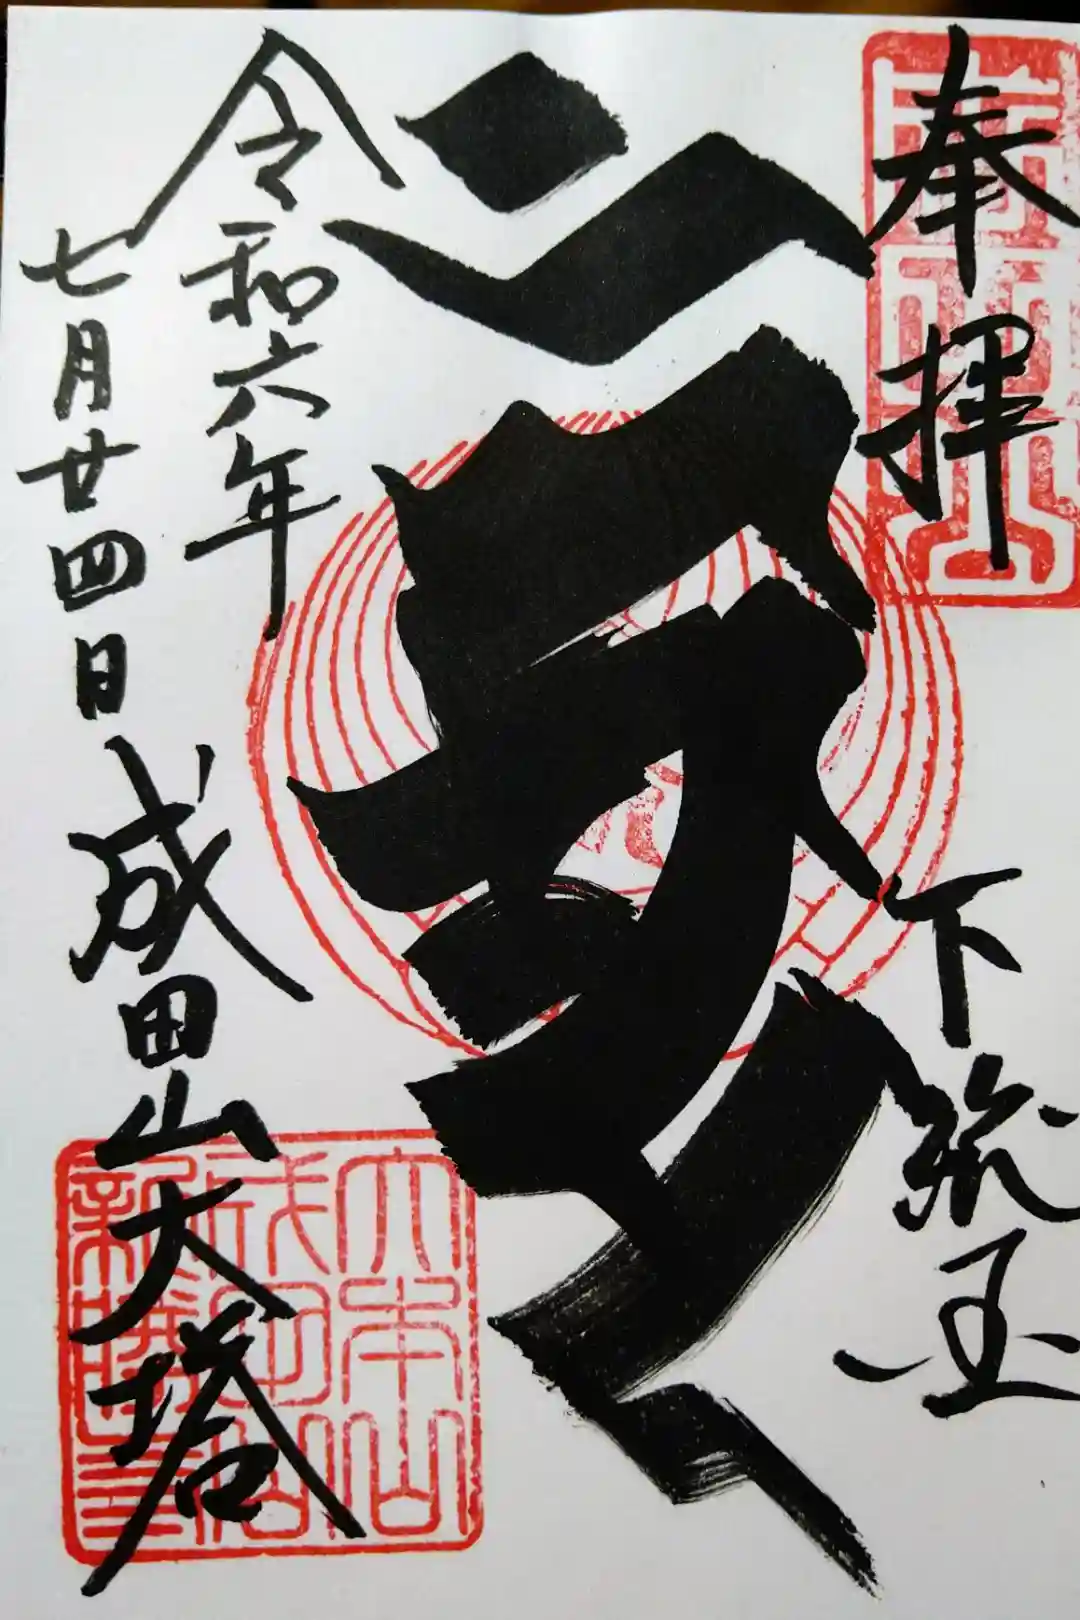 奉拝
下総国
令和六年
七月廿四日 成田山大塔
大本山
成田山
新勝寺